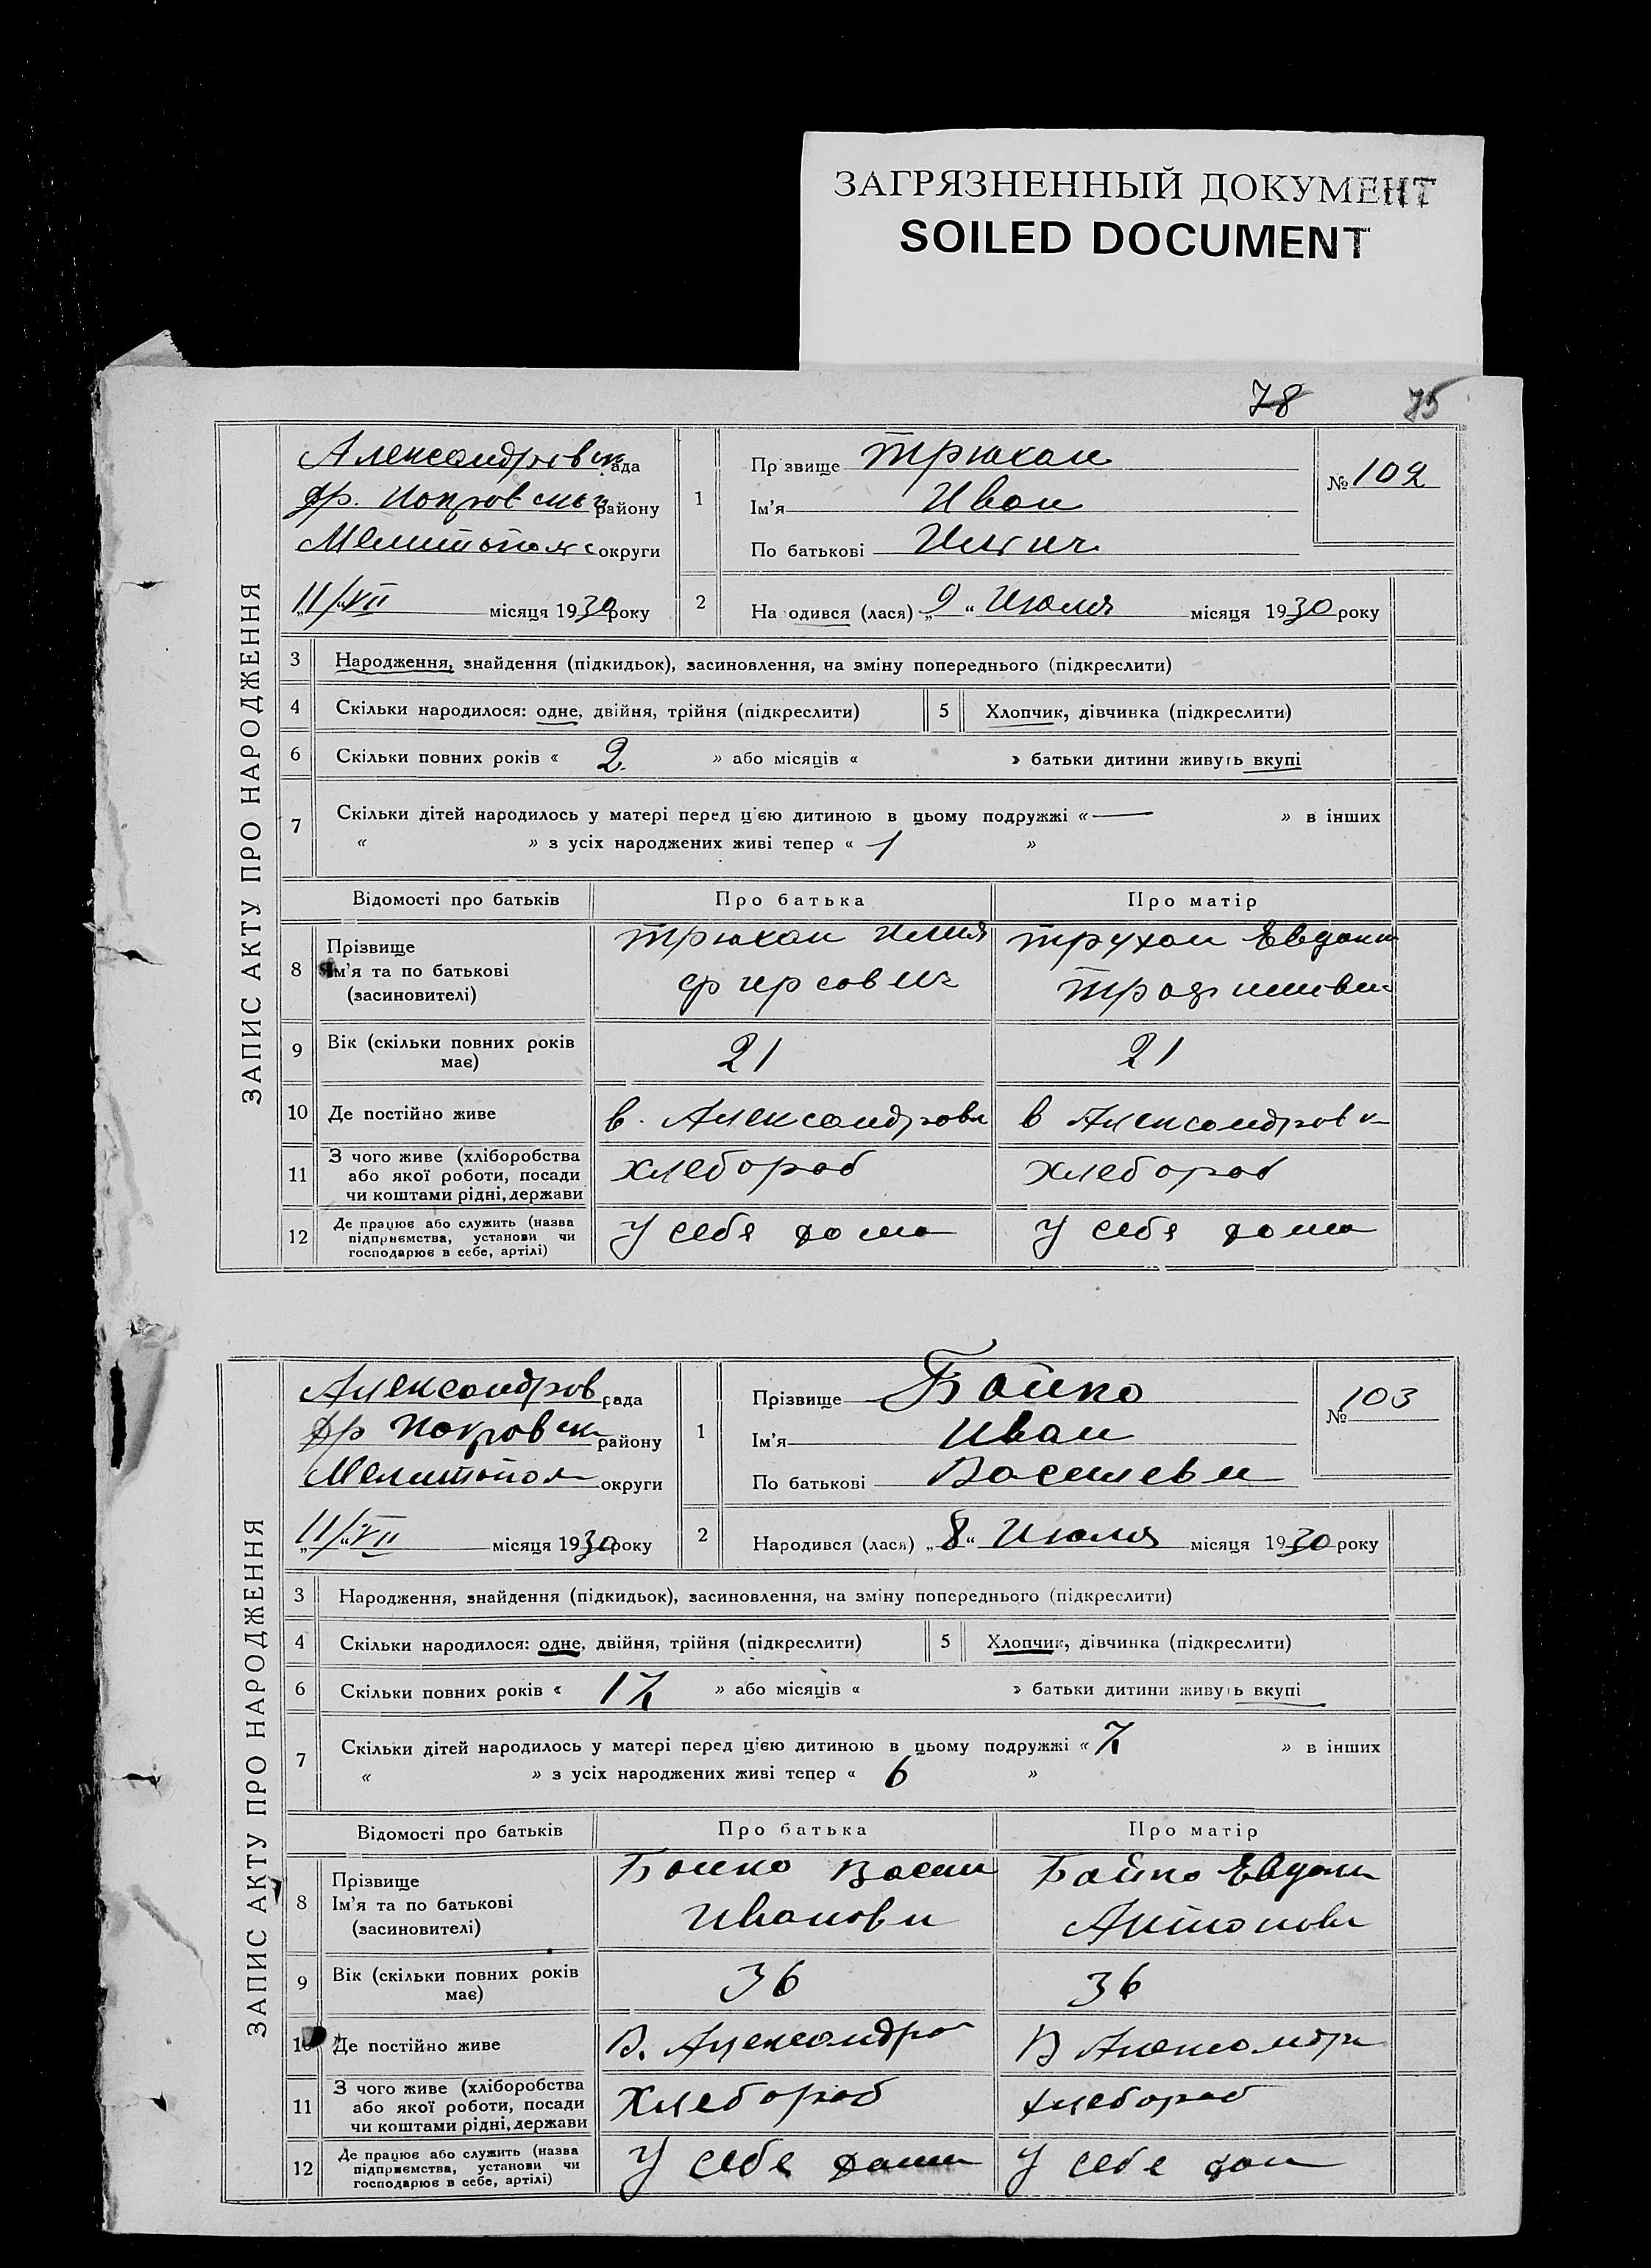 ЗАГРЯЗНЕННЫЙ ДОКУМЕНТ
SOILED DOCUMENT
78 75
ЗАПИС АКТУ ПРО НАРОДЖЕННЯ
Александровск рада
району
Мелитопольс округи
11/VII місяця 1930 року
1
Пр звище Трюхан
Ім’я Иван
По батькові Ильич
№ 102
2 На одився (лася) „9“ Июля місяця 1930 року
3 Народження, знайдення (підкидьок), засиновлення, на зміну попереднього (підкреслити)
4 Скільки народилося: одне, двійня, трійня (підкреслити) 5 Хлопчик, дівчинка (підкреслити)
6 Скільки повних років « 2 » або місяців « » батьки дитини живуть вкупі
7 Скільки дітей народилось у матері перед цією дитиною в цьому подружжі « — » в інших
« » з усіх народжених живі тепер « 1 »
Відомості про батьків Про батька Про матір
8 Прізвище Трюхан Илия Трухан Евдоки
Ім’я та по батькові Фирсович
(засновителі)
9 Вік (скільки повних років має) 21 21
10 Де постійно живе в. Александровк в Александровк
11 З чого живе (хліборобства або якої роботи, посади чи коштами рідні, держави хлебороб хлебороб
12 Де працює або служить (назва підприємства, установи чи господарює в себе, артілі) У себе дома У себе дома
ЗАПИС АКТУ ПРО НАРОДЖЕННЯ
Александров рада
Покровск району
Мелитопол округи
11/VII місяця 1930 року
1
Прізвище Бойко
Ім’я Иван
По батькові Василеви
№ 103
2 Народився (лася) „8“ Июля місяця 1930 року
3 Народження, знайдення (підкидьок), засиновлення, на зміну попереднього (підкреслити)
4 Скільки народилося: одне, двійня, трійня (підкреслити) 5 Хлопчик, дівчинка (підкреслити)
6 Скільки повних років « 17 » або місяців « » батьки дитини живуть вкупі
7 Скільки дітей народилось у матері перед цією дитиною в цьому подружжі « 7 » в інших
« » з усіх народжених живі тепер « 6 »
Відомості про батьків Про батька Про матір
8 Прізвище Бойко Васили Бойко Евдоки
Ім’я та по батькові Иванови Антонов
(засиновителі)
9 Вік (скільки повних років має) 36 36
10 Де постійно живе В. Александро В Александр
11 З чого живе (хліборобства або якої роботи, посади чи коштами рідні, держави Хлебороб хлебороб
12 Де працює або служить (назва підприємства, установи чи господарює в себе, артілі) У себе дома У себе дом